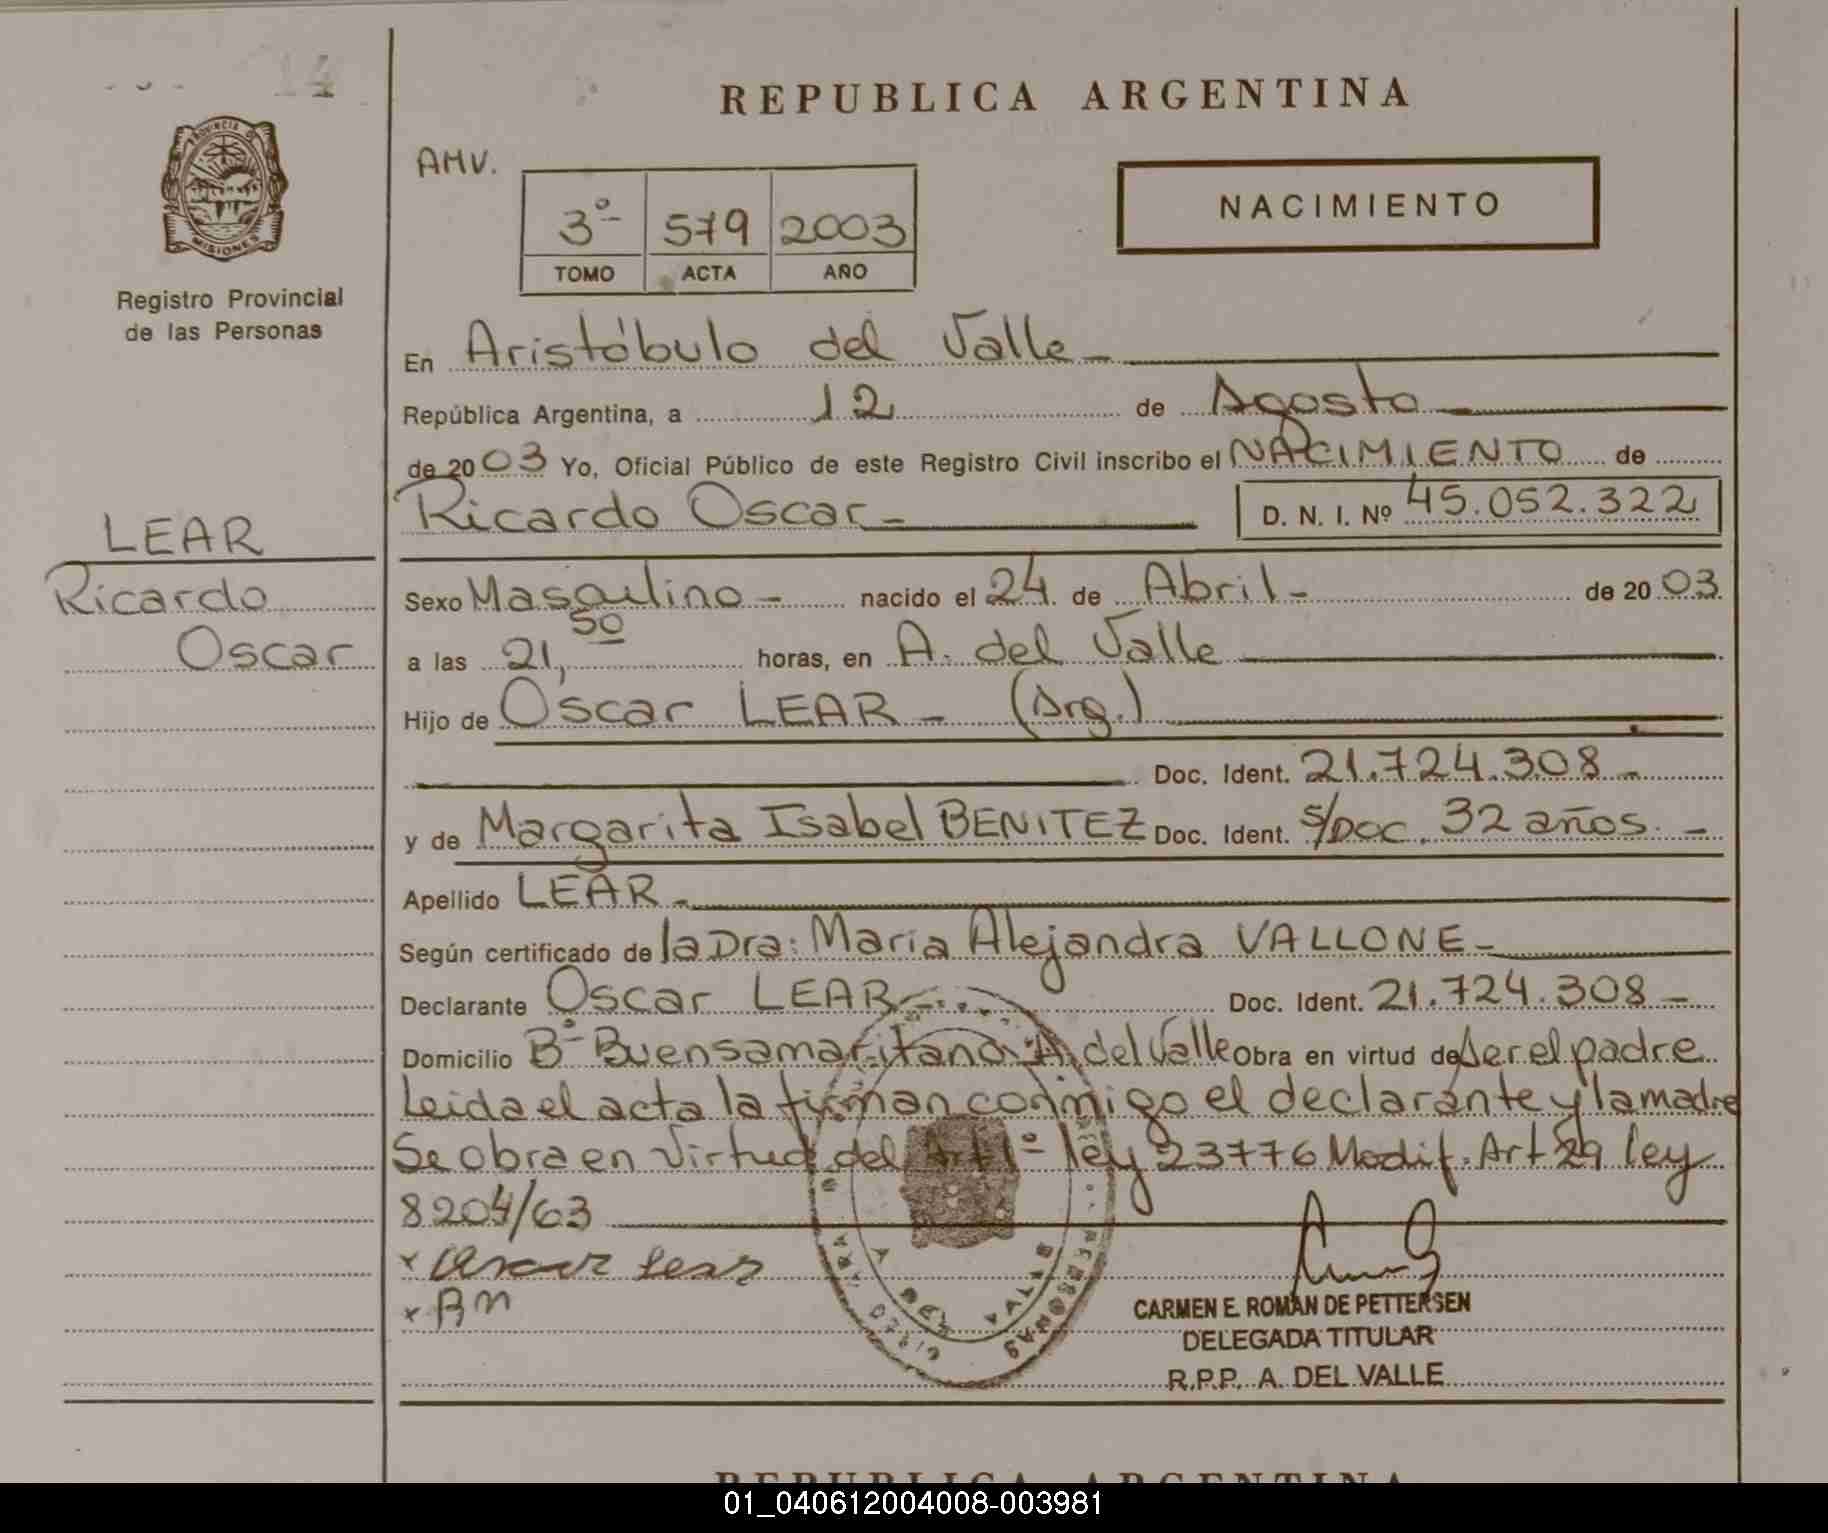 14
PROVINCIA DE
MISIONES
Registro Provincial
de las Personas
LEAR
Ricardo
Oscar
REPUBLICA ARGENTINA
AMV.
3º 579 2003
TOMO ACTA AÑO
NACIMIENTO
En Aristóbulo del Valle
República Argentina, a 12 de Agosto
de 2003 Yo, Oficial Público de este Registro Civil inscribo el NACIMIENTO de
Ricardo Oscar D. N. I. Nº 45.052.322
Sexo Masculino nacido el 24 de Abril de 2003
a las 21,50 horas, en A. del Valle
Hijo de Oscar LEAR (Arg.)
Doc. Ident. 21.724.308
y de Margarita Isabel BENITEZ Doc. Ident. s/Doc. 32 años.
Apellido LEAR
Según certificado de la Dra: María Alejandra VALLONE
Declarante Oscar LEAR Doc. Ident. 21.724.308
Domicilio Bº Buensamaritano A. del Valle Obra en virtud de Ser el padre
Leida el acta la firman conmigo el declarante y la madre
Se obra en Virtud del Art 1º ley 23776 Modif. Art 29 ley
8204/63
x Oscar Lear
x BM
PERSONAS
A DEL VALLE
CARMEN E. ROMAN DE PETTERSEN
DELEGADA TITULAR
R.P.P. A. DEL VALLE
REPUBLICA ARGENTINA
01_040612004008-003981